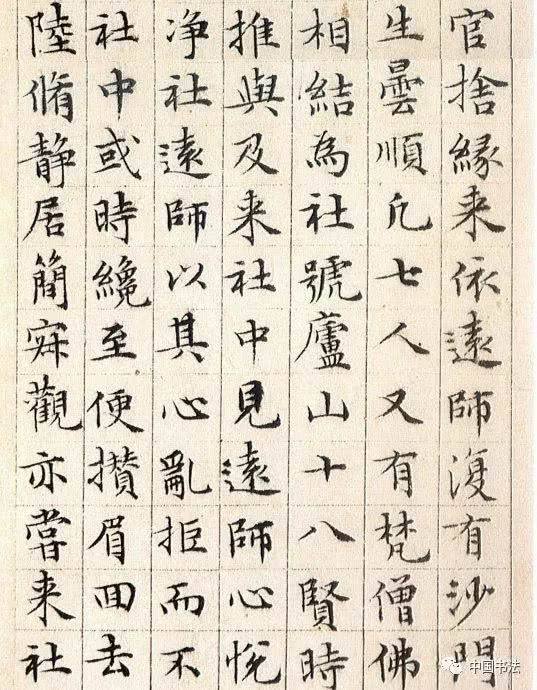 官捨緣来依遠師復有沙門
生曇順凡七人又有梵僧佛
相結為社號廬山十八賢時
推與及来社中見遠師心悅
净社遠師以其心亂拒而不
社中或時纔至便攢眉回去
陸脩静居簡寂觀亦嘗来社
中国书法